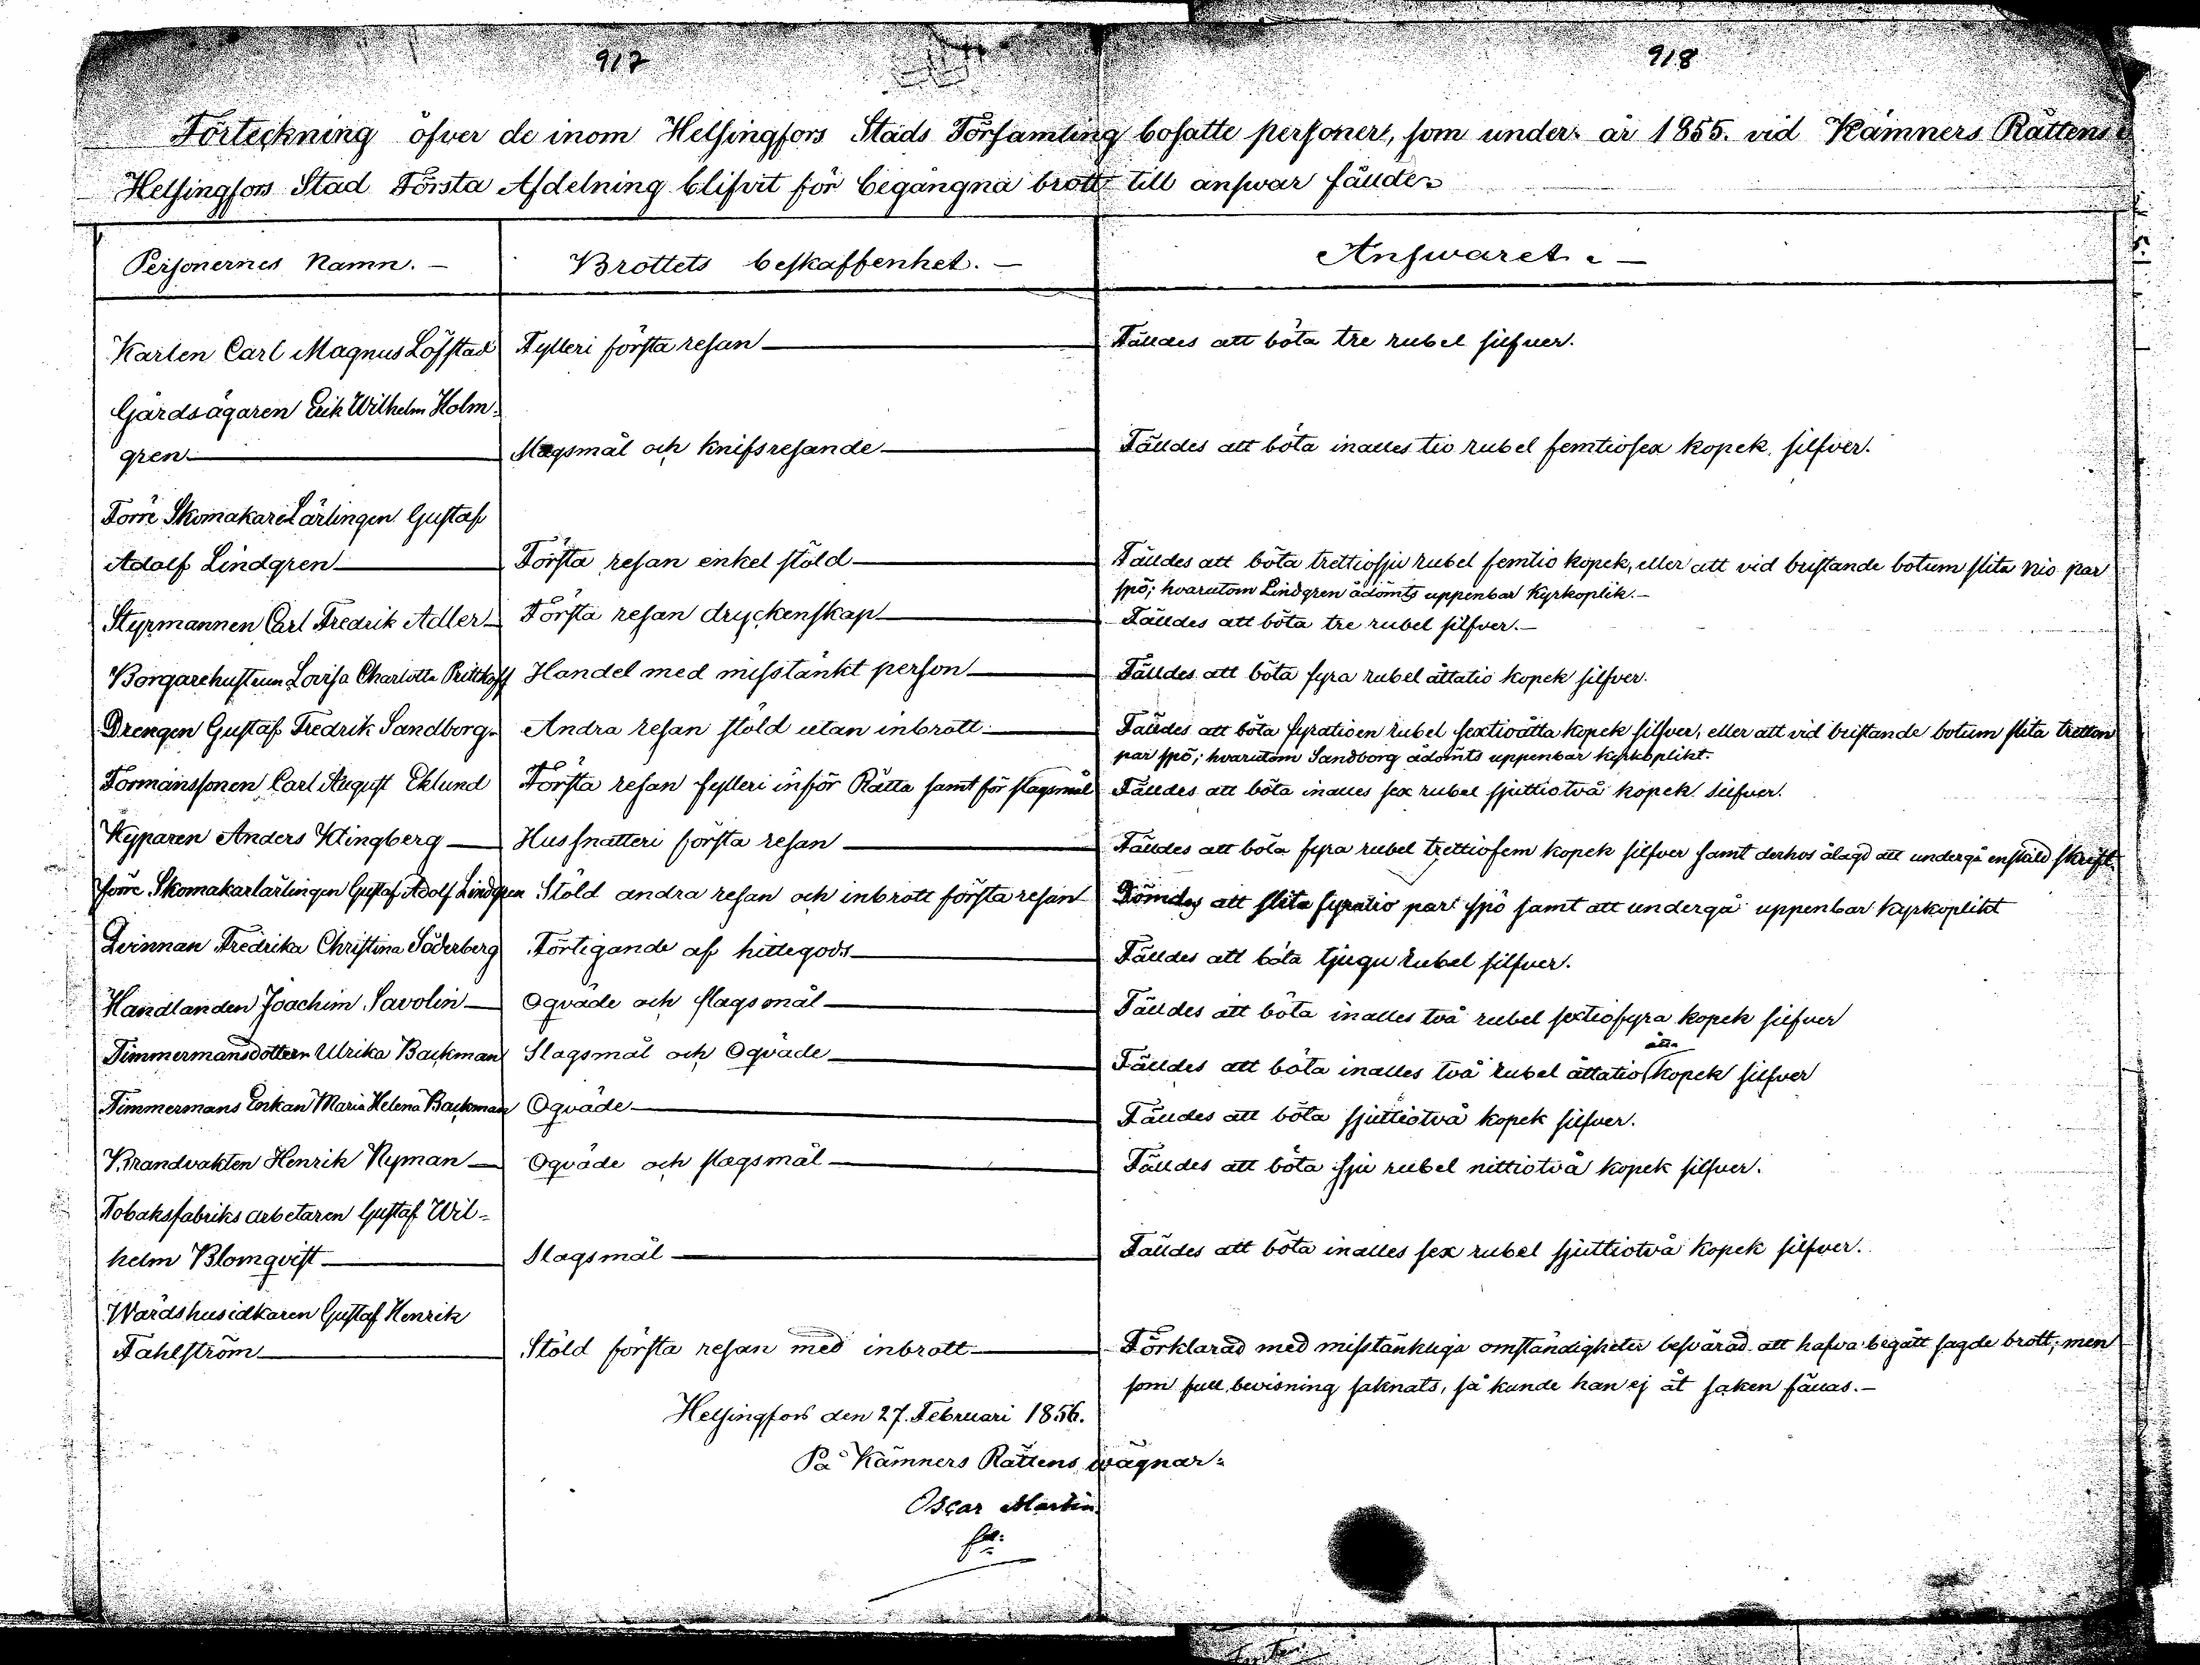 917
918
Förteckning öfver de inom Helsingfors Stads Församling bosatte personer, som under år 1855. vid Kämners Rättens i
Helsingfors Stad Första Afdelning blifvit för begångna brott till answar fällde.
Personernes Namn. —
Brottets beskaffenhet. —
Answaret. —
Karlen Carl Magnus Löfstad
Fylleri första resan
Fälldes att böta tre rubel silfver.
Gårdsägaren Erik Wilhelm Holm-
gren
Slagsmål och knifsresande
Fälldes att böta inalles tio rubel femtiosex kopek silfver.
Förre Skomakare Lärlingen Gustaf
Adolf Lindgren
Första resan enkel stöld
Fälldes att böta trettiosju rubel femtio kopek, eller att vid bristande botum slita nio par
spö; hvarutom Lindgren ådömts uppenbar Kyrkoplik. —
Styrmannen Carl Fredrik Adler
Första resan dryckenskap
Fälldes att böta tre rubel silfver. —
Borgarehustrun Lovisa Charlotta
Handel med misstänkt person
Fälldes att böta fyra rubel åttatio kopek silfver.
Drengen Gustaf Fredrik Sandborg
Andra resan stöld utan inbrott
Fälldes att böta fyratioen rubel sextioåtta kopek silfver, eller att vid bristande botum slita tretton
par spö; hvarutom Sandborg ådömts uppenbar kyrkoplikt.
Formanssonen Carl August Eklund
Första resan fylleri inför Rätta samt för slagsmål
Fälldes att böta inalles sex rubel sjuttiotvå kopek silfver.
Kyparen Anders Klingberg
Hussnatteri första resan
Fälldes att böta fyra rubel trettiofem kopek silfver samt derhos ålagd att undergå enskild skrift
förre Skomakarlärlingen Gustaf Adolf Lindgren
Stöld andra resan och inbrott första resan
Dömdes att slita fyratio par spö samt att undergå uppenbar Kyrkoplikt
Qvinnan Fredrika Christina Söderberg
Förtigande af hittegods
Fälldes att böta tjugu rubel silfver.
Handlanden Joachim Savolin
Oqväde och slagsmål
Fälldes att böta inalles två rubel sextiofyra kopek silfver
Timmermansdottern Ulrika Backman
Slagsmål och Oqväde
åtta
Fälldes att böta inalles två rubel åttatio kopek silfver
Timmermans Enkan Maria Helena Backman
Oqväde
Fälldes att böta sjuttiotvå kopek silfver.
Brandvakten Henrik Nyman
Oqväde och slagsmål
Fälldes att böta sju rubel nittiotvå kopek silfver.
Tobaksfabriks arbetaren Gustaf Wil-
helm Blomqvist
Slagsmål
Fälldes att böta inalles sex rubel sjuttiotvå kopek silfver.
Wärdshusidkaren Gustaf Henrik
Fahlström
Stöld första resan med inbrott
Förklarad med misstänkliga omständigheter besvärad att hafva begått sagde brott; men
som full bevisning saknats, så kunde han ej åt saken fällas. —
Helsingfors den 27. Februari 1856.
På Kämners Rättens wägnar:
Oscar Martin